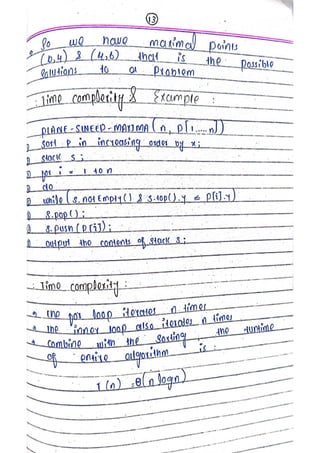 13
So we have maximal points
(0,4) & (4,6) that is the possible
solutions to a problem
: Time complexity & Example :
PLANE-SWEEP-MAXIMA (n, P[1.....n])
sort P in increasing order by x;
stack s;
for i = 1 to n
do
while (s.notEmpty() & s.top().y ≤ P[i].y)
s.pop();
s.push (P[i]);
output the contents of stack s;
: Time complexity :
the for loop iterates n times
the inner loop also iterates n times
combine with the sorting the runtime
of entire algorithm is :
T(n) = θ(n logn)